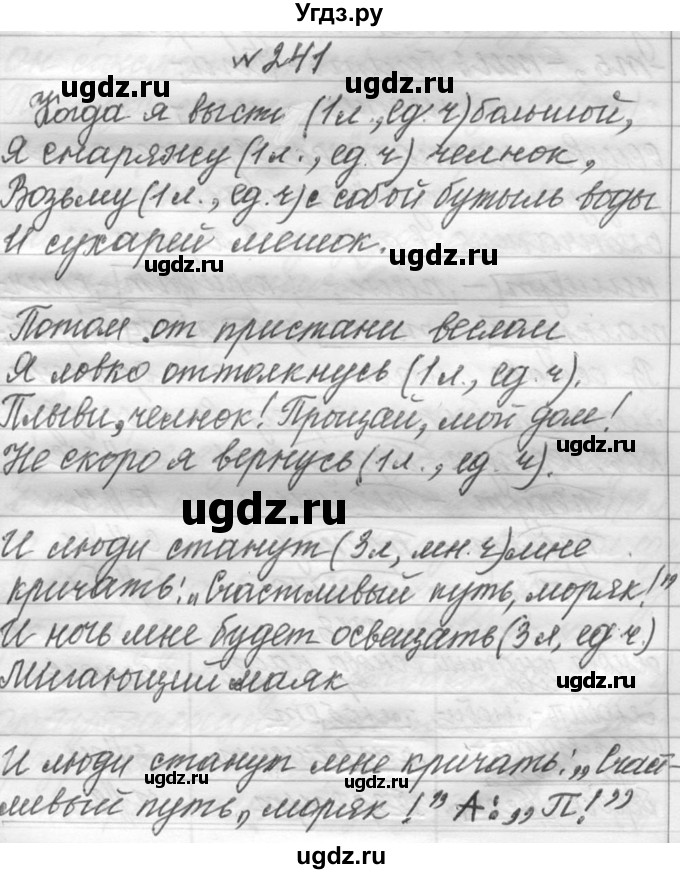 Угдз.ру
№ 241
ugdz.ru
ugdz.ru
Когда я высть (1л., ед. ч) большой,
Я снаряжу (1л., ед. ч) челнок,
ugdz.ru
Возьму (1л., ед. ч) с собой бутыль воды
И сухарей мешок.
ugdz.ru
ugdz.ru
Потом от пристани веслом
Я ловко оттолкнусь (1л., ед. ч).
ugdz.ru
Плыви, челнок! Прощай, мой дом!
ugdz.ru
Не скоро я вернусь (1л., ед. ч).
ugdz.ru
И люди станут (3л, мн. ч) мне
кричать: „Счастливый путь, моряк!”
ugdz.ru
И ночь мне будет освещать (3л, ед ч.)
Мигающий маяк
ugdz.ru
ugdz.ru
И люди станут мне кричать: „Счаст-
ugdz.ru
ugdz.ru
ливый путь, моряк!” А: „П!”
ugdz.ru